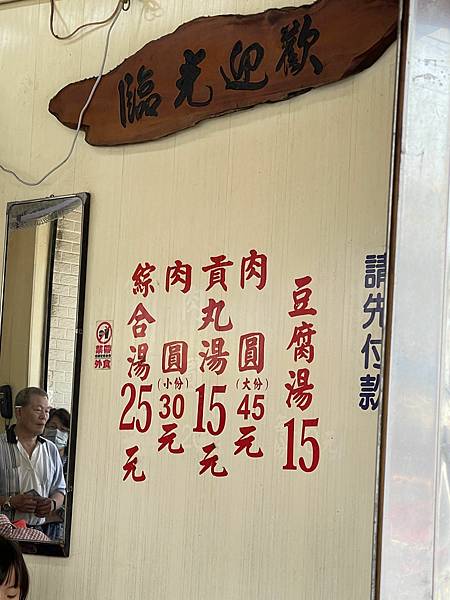 歡迎光臨
請先付款
豆腐湯15
肉圓(大份)45元
貢丸湯15元
肉圓(小份)30元
綜合湯25元
禁帶外食